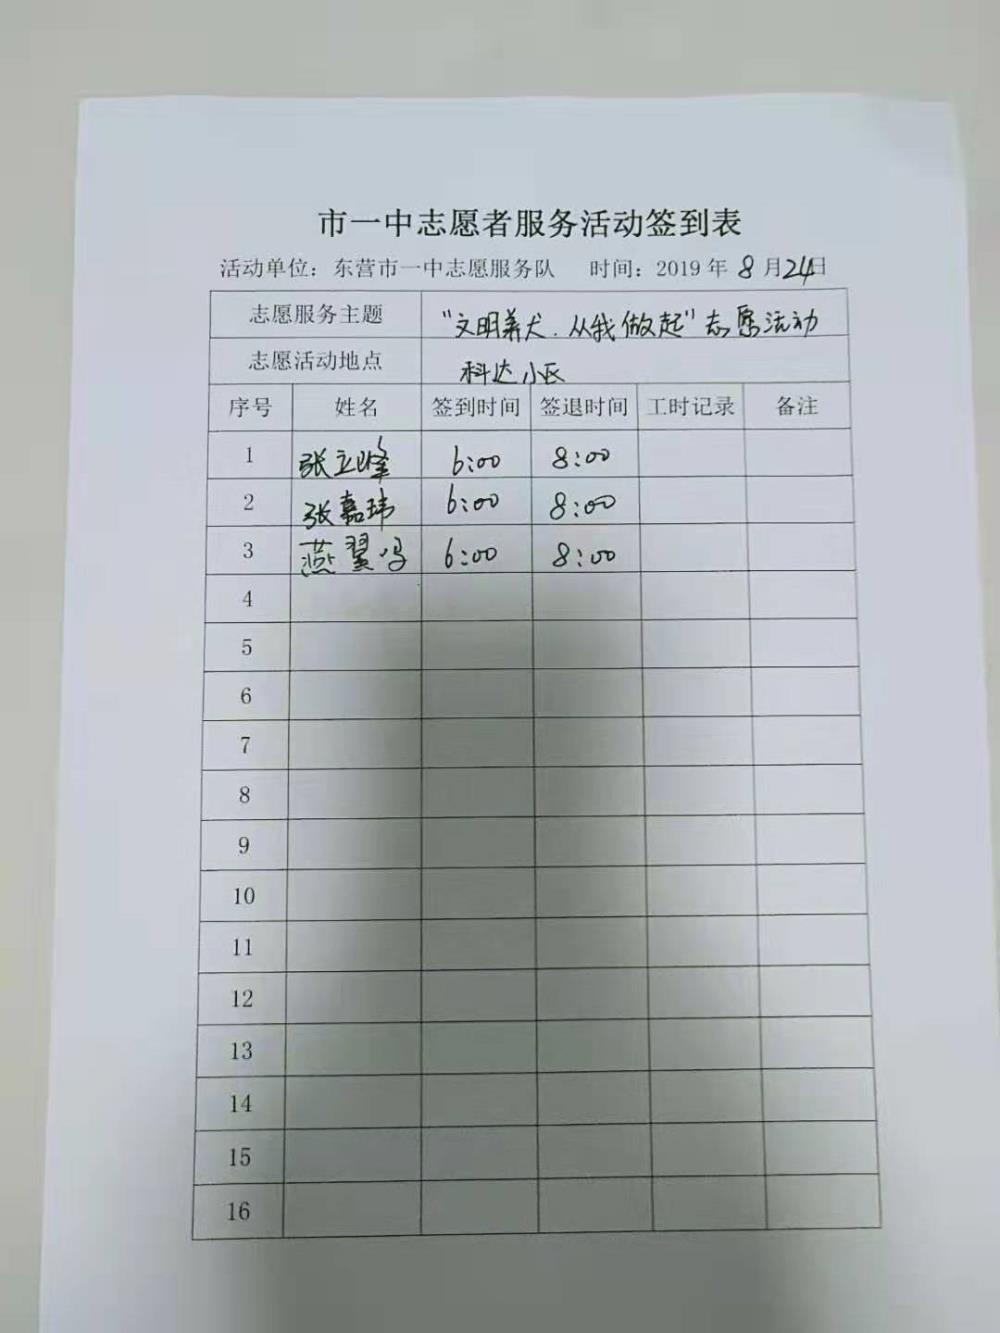 市一中志愿者服务活动签到表
活动单位：东营市一中志愿服务队 时间：2019年8月24日
志愿服务主题 "文明养犬.从我做起"志愿活动
志愿活动地点 科达小区
序号 姓名 签到时间 签退时间 工时记录 备注
1 张立峰 6:00 8:00
2 张嘉玮 6:00 8:00
3 燕翼鸣 6:00 8:00
4
5
6
7
8
9
10
11
12
13
14
15
16